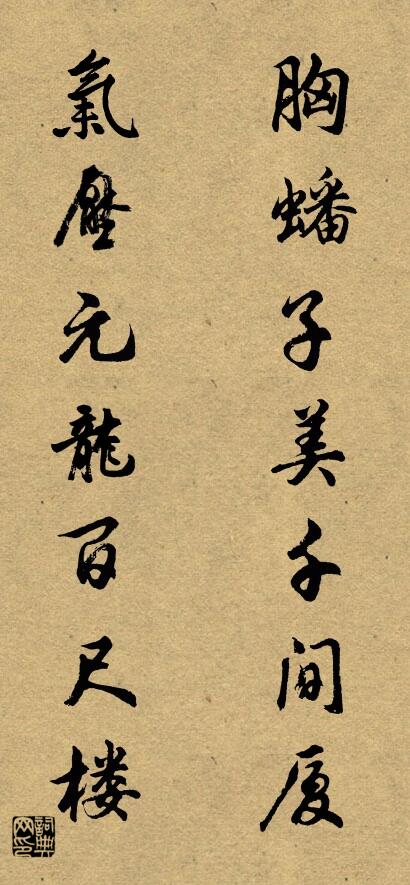 胸蟠子美千间厦
氣壓元龍百尺楼
詞典网印